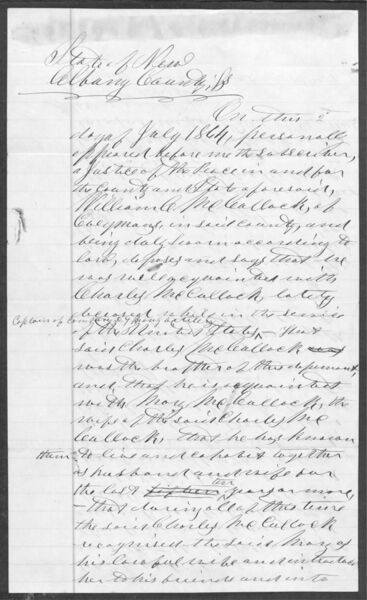 State of New
Albany County, ss
On this 2
day of July 1864, personally
appeared before me the subscriber,
a justice of the Peace in and for
the County and State aforesaid,
William C McCullock, of
Coeymans, in said county, and
being duly sworn according to
law, deposes and says that he
was well acquainted with
Charles McCullock, lately
deceased, who in the service
Captain of Company
of the United States, - that
said Charles McCullock was
was the brother of this deponent,
and that he is acquainted
with Mary McCullock, the
wife of the said Charles Mc
Cullock, that he has known
them to live and cohabit together
as husband and wife for
the last ten years or more,
- that during all of this time
the said Charles McCullock
recognised the said Mary as
his lawful wife and introduced
her to his friends and into